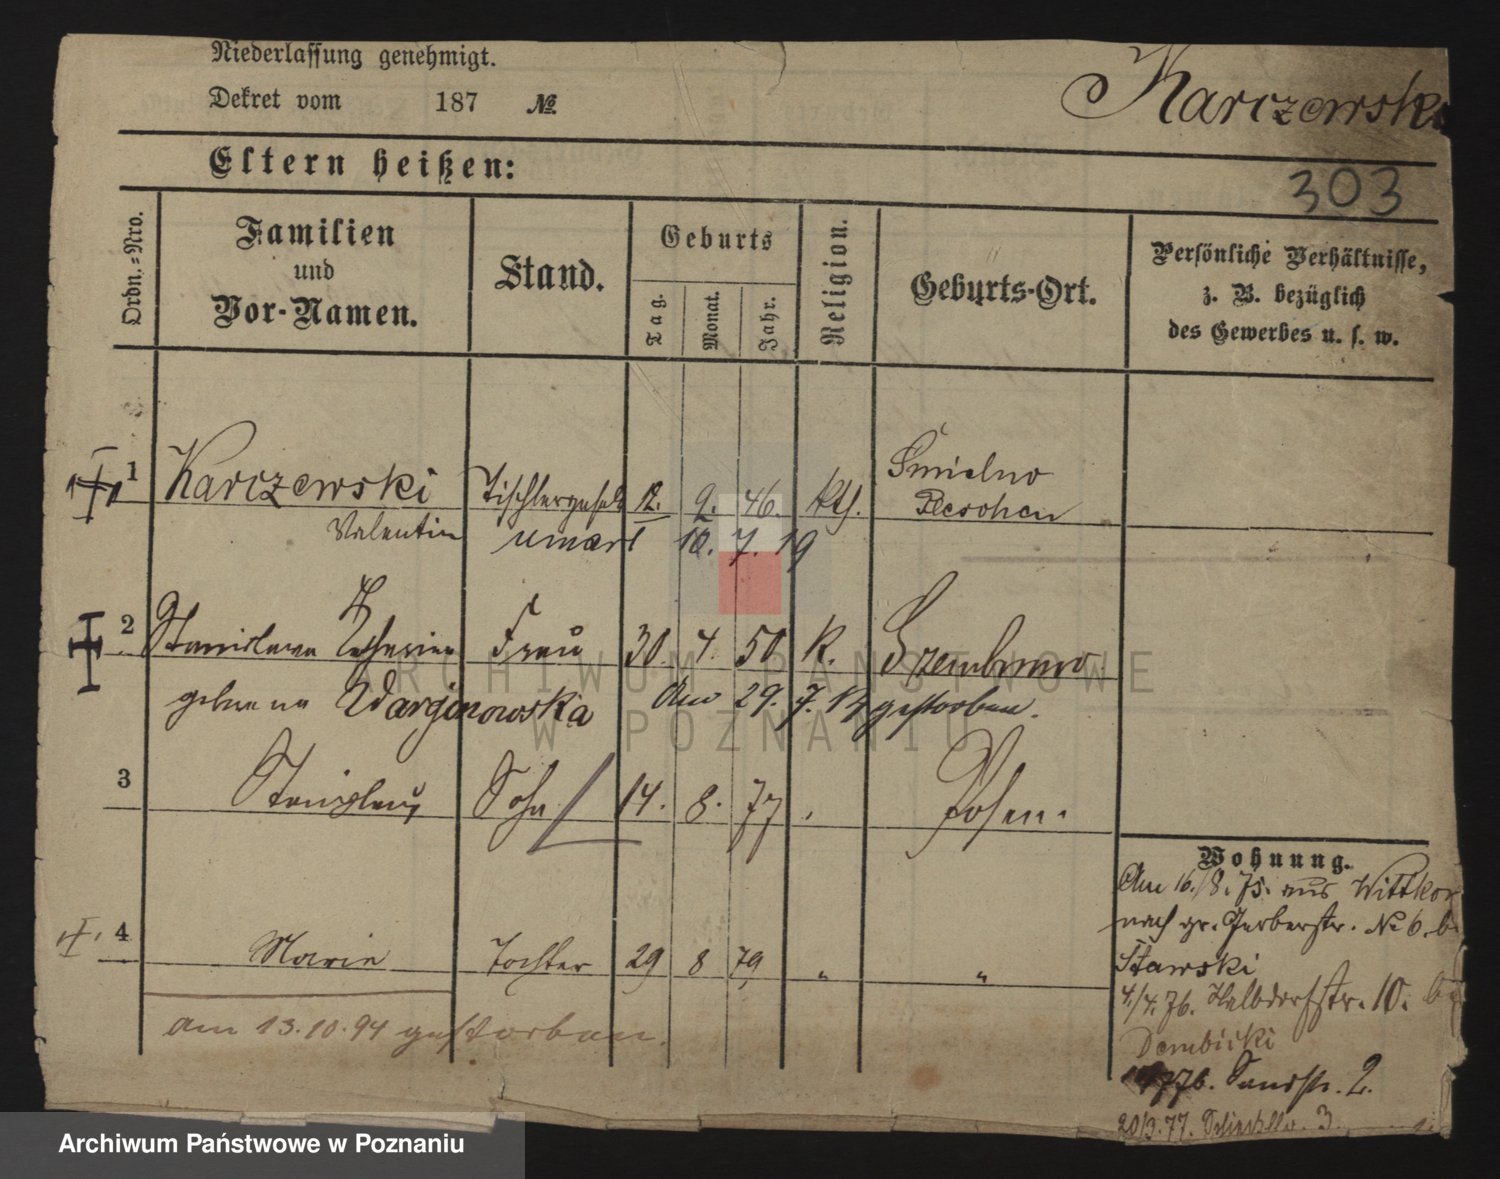 Niederlassung genehmigt.
Dekret vom 187 №
Karczewski
Eltern heißen:
303
Ordn.=Nro.
Familien
und
Vor-Namen.
Stand.
Geburts
Tag.
Monat.
Jahr.
Religion.
Geburts-Ort.
Persönliche Verhältnisse,
z. B. bezüglich
des Gewerbes u. s. w.
1 Karczewski Tischlergesell 12. 9. 46. Kth. Smielno
Valentin 10. 7. 19
2 Stanislawa Frau 30. 4. 50 K.
geborene am 29. 7. gestorben.
3 Stanislaus Sohn 14. 8. 77 Posen.
4 Marie Tochter 29 8 79 " "
am 13.10.94 gestorben.
Wohnung.
Am 16./8. 75. aus Wittkow
nach gr. Gerberstr. № 6. b.
Stawski
4./4. 76. Halbdorfstr. 10. bei
Dembicki
76. Sandstr. 2.
20/3. 77. 3.
ARCHIWUM PAŃSTWOWE
W POZNANIU
Archiwum Państwowe w Poznaniu